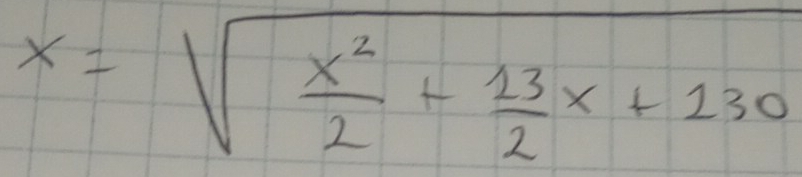 x = √(x²/2 + 13/2 x + 130)